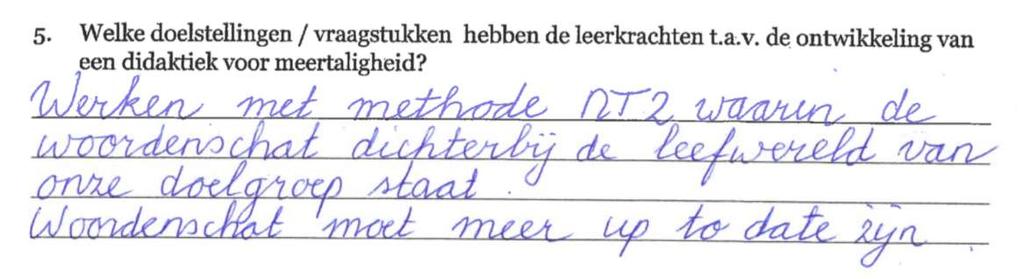 5. Welke doelstellingen / vraagstukken hebben de leerkrachten t.a.v. de ontwikkeling van
een didaktiek voor meertaligheid?
Werken met methode NT2 waarin de
woordenschat dichterbij de leefwereld van
onze doelgroep staat.
Woordenschat moet meer up to date zijn.